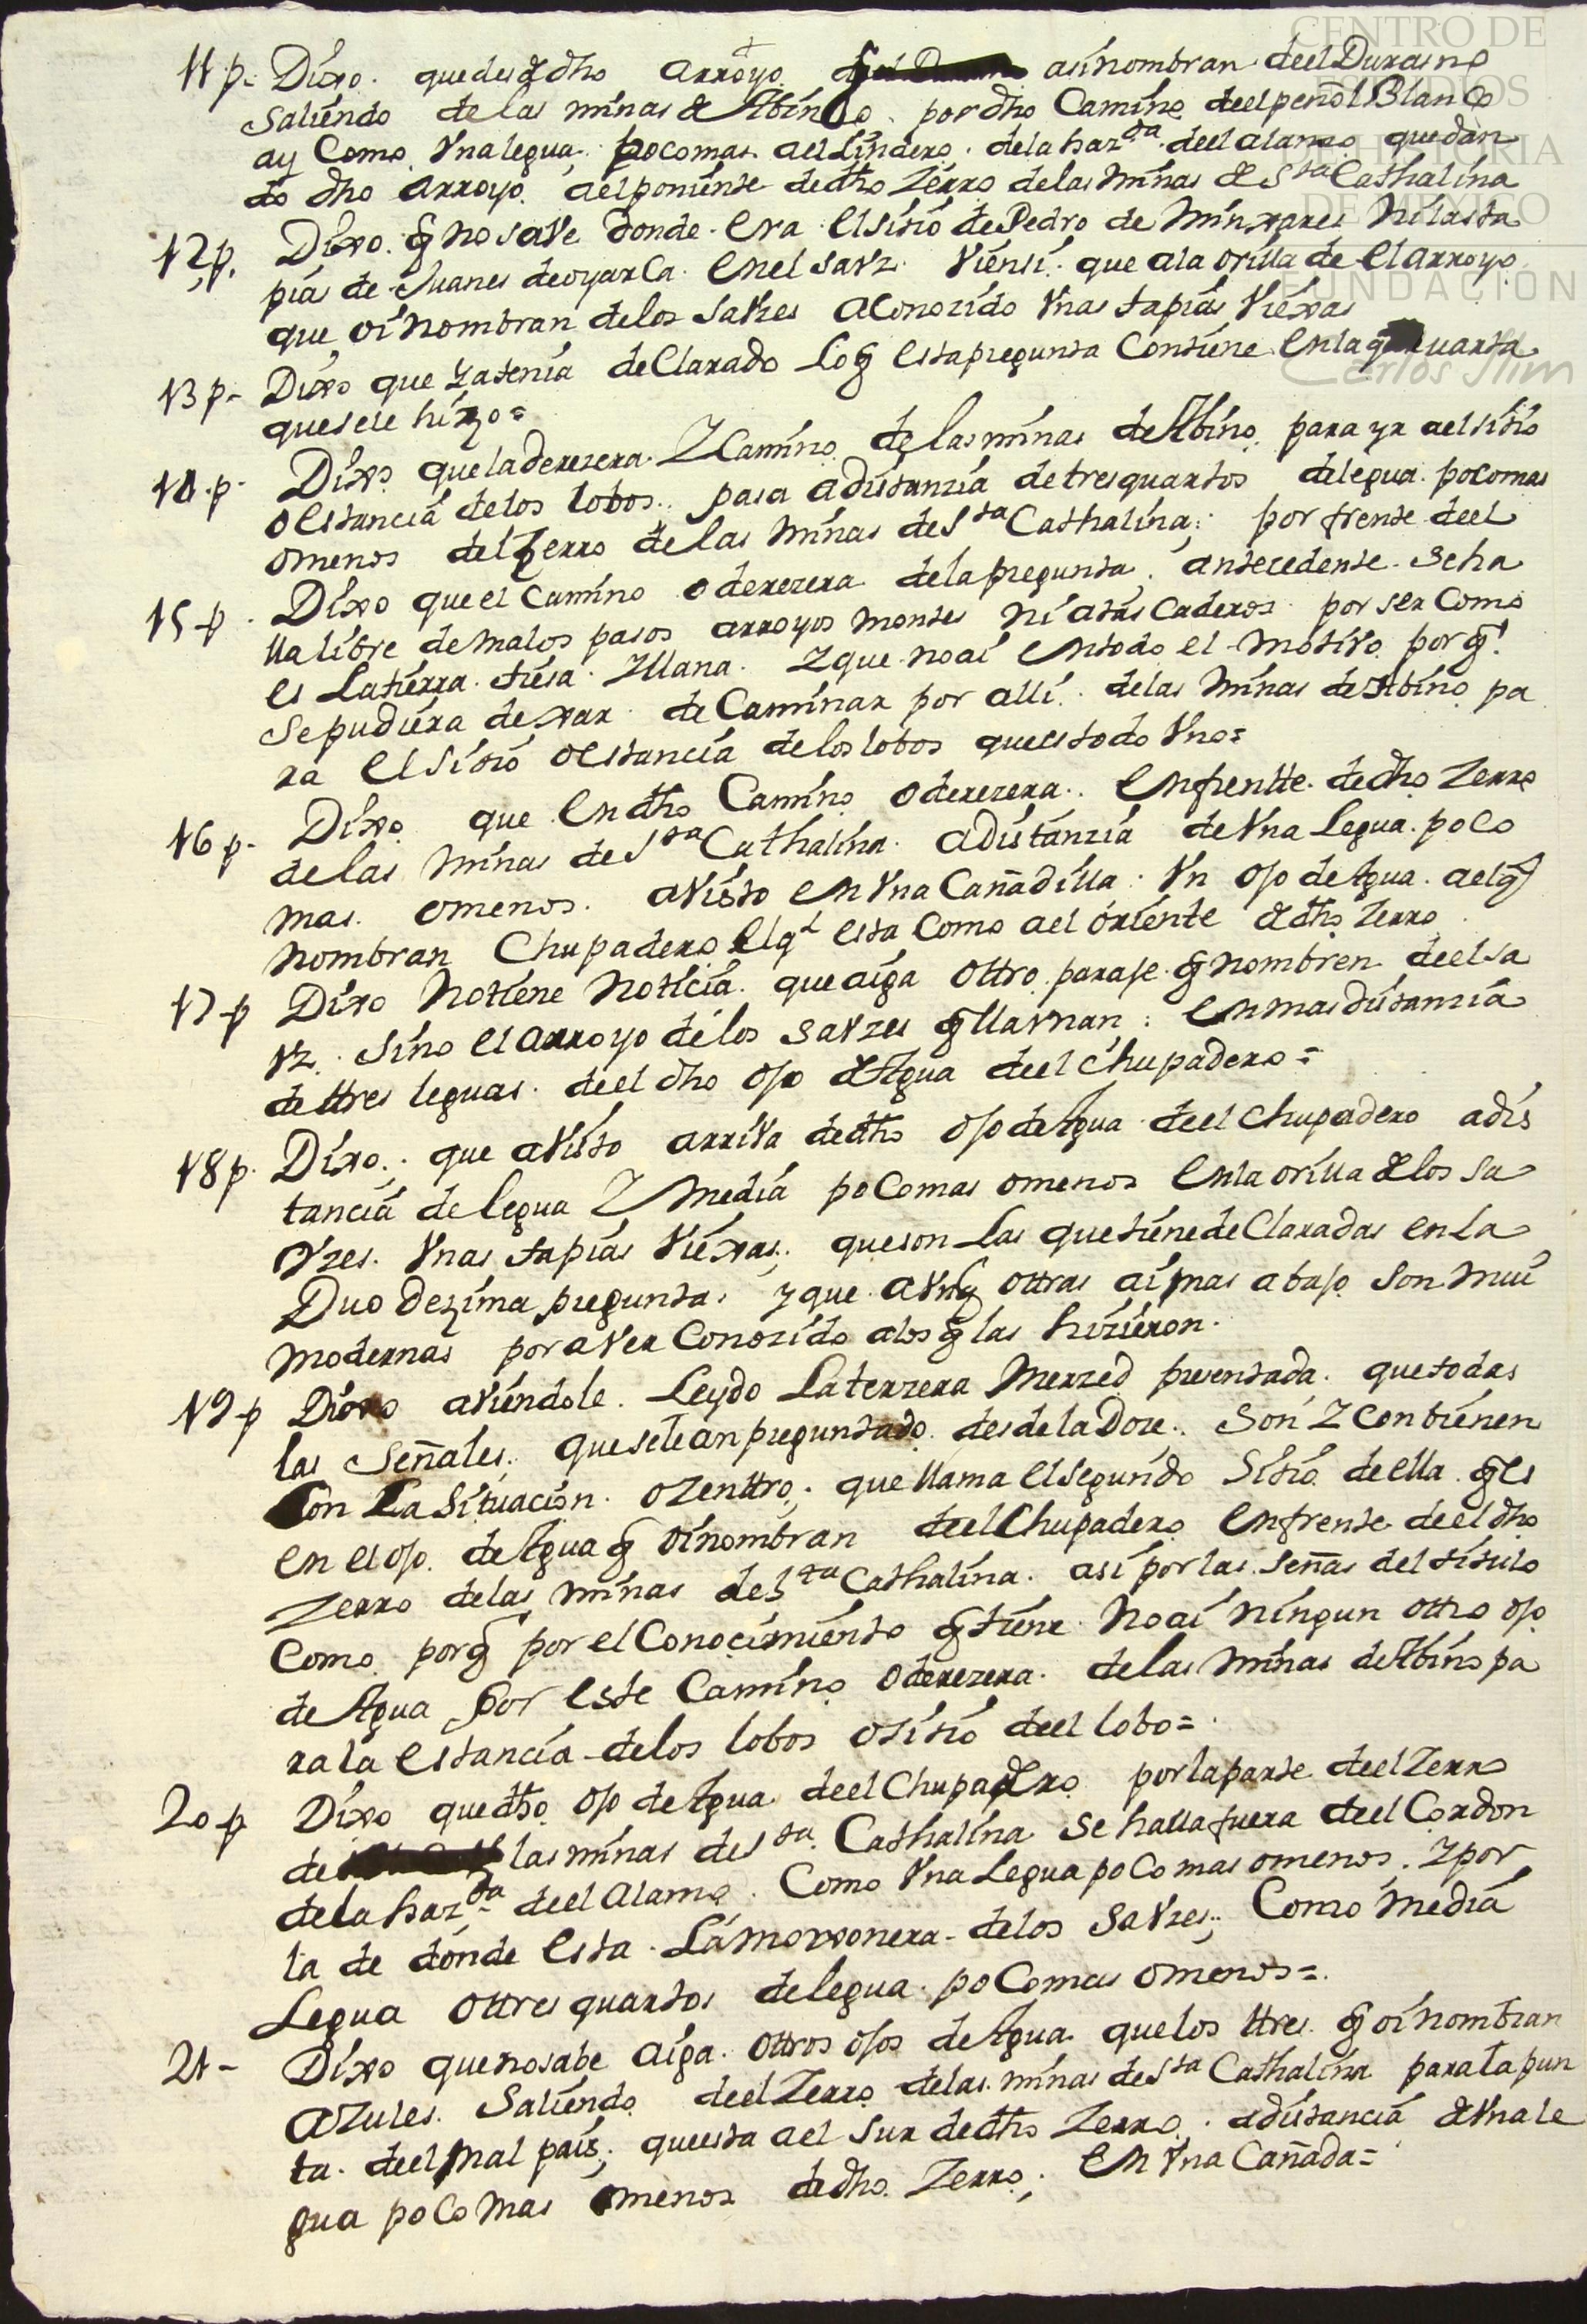 CENTRO DE
ESTUDIOS
DE HISTORIA
DE MÉXICO
FUNDACIÓN
Carlos Slim
11 p. Dixo. que desde dho arroyo asi nombran de el Durasno
saliendo de las minas de Abino por dho Camino de el peñol Blanco
ay Como Vna legua poco mas ael Lindero de la hazda de el alamo quedan
do dho arroyo ael poniente de dho Zerro de las minas de Sta Cathalina
12 p. Dixo q no save donde era el sitio de Pedro de Minxares Ni las ta
pias de Juanes de oyarCa en el sauz Vien si que a la orilla de el arroyo
que oi nombran de los Sauzes a Conozido Vnas tapias Viexas
13 p. Dixo que ya tenia deClarado Lo q esta pregunta Contiene en la quarta
que se le hizo=
14 p. Dixo que la derezera y Camino de las minas de Abino para yr ael sitio
o estancia de los lobos. pasa a distanzia de tres quartos de legua poco mas
o menos del Zerro de las Minas de Sta Cathalina; por frente de el
15 p. Dixo que el Camino o derezera de la pregunta antecedente se ha
lla libre de malos pasos arroyos montes Ni atasCaderos por ser Como
es La tierra tiesa y llana. y que no ai en todo el motivo por q
se pudiera dexar de Caminar por alli de las Minas de Abino pa
ra el sitio o estancia de los lobos que es todo Vno=
16 p. Dixo que en dho Camino o derezera. enfrentte de dho Zerro
de las Minas de Sta Cathalina. a distanzia de Vna Legua poco
mas o menos. a Visto en Vna Cañadilla Vn ojo de Agua. ael q
nombran Chupadero el ql esta Como ael oriente de dho Zerro.
17 p Dixo No tiene Noticia que aiga ottro paraje q nombren de el sa
uz. Sino el arroyo de los Sauzes q llaman: en mas distanzia
de ttres leguas de el dho ojo de Agua de el Chupadero=
18 p. Dixo: que a Visto arriva de dho ojo de Agua de el Chupadero a dis
tancia de legua y media poco mas o menos en la orilla de los Sa
uzes. Vnas tapias Viexas; que son Las que tiene deClaradas en La
Duo dezima pregunta. y que avnq ottras ai mas abajo son mui
modernas por aver Conozido a los q las hizieron.
19 p Dixo aviendole Leydo La terzera Merzed presentada. que todas
las Señales. que se le an preguntado desde la Doze. Son y Contienen
Con La Situacion o Zenttro; que llama el segundo Sitio de ella q es
en el ojo de Agua q oi nombran de el Chupadero enfrente de el dho
Zerro de las minas de Sta Cathalina. asi por las Señas del titulo
Como por q por el Conocimiento q tiene No ai Ningun ottro ojo
de Agua por este Camino o derezera de las Minas de Abino pa
ra la estancia de los lobos o sitio de el lobo=.
20 p Dixo que dho ojo de Agua de el Chupadero por la parte de el Zerro
de las minas de Sta Cathalina se halla fuera de el Cordon
de la hazda de el Alamo. Como Vna Legua poco mas o menos. y por
la de donde esta La moxonera de los Sauzes; Como media
Legua o ttres quartos de legua poco mas o menos=.
21 - Dixo que no sabe aiga ottros ojos de Agua que los ttres q oi nombran
azules. Saliendo de el Zerro de las minas de Sta Cathalina para la pun
ta de el mal pais; que esta ael sur de dho Zerro. a distancia de Vna le
gua poco Mas o menos de dho Zerro; en Vna Cañada=